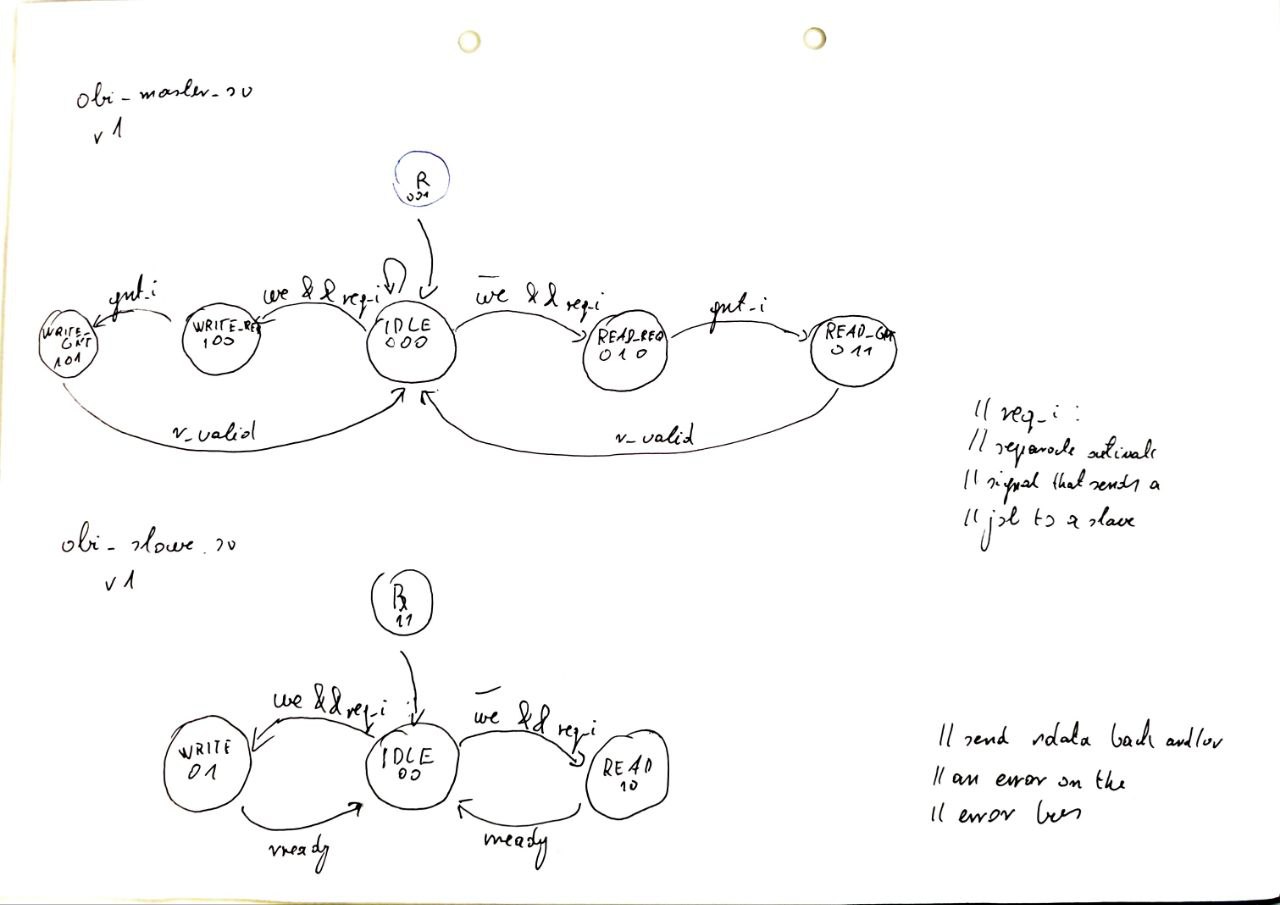 obi-master.sv
v1
R
001
gnt_i
we && req_i
w̅e̅ && req_i
gnt_i
WRITE_GNT
101
WRITE_REQ
100
IDLE
000
READ_REQ
010
READ_GNT
011
r_valid
r_valid
// req_i :
// separate activate
// signal that sends a
// job to a slave
obi-slave.sv
v1
R
11
we && req_i
w̅e̅ && req_i
WRITE
01
IDLE
00
READ
10
rready
rready
// send rdata back and/or
// an error on the
// error bus